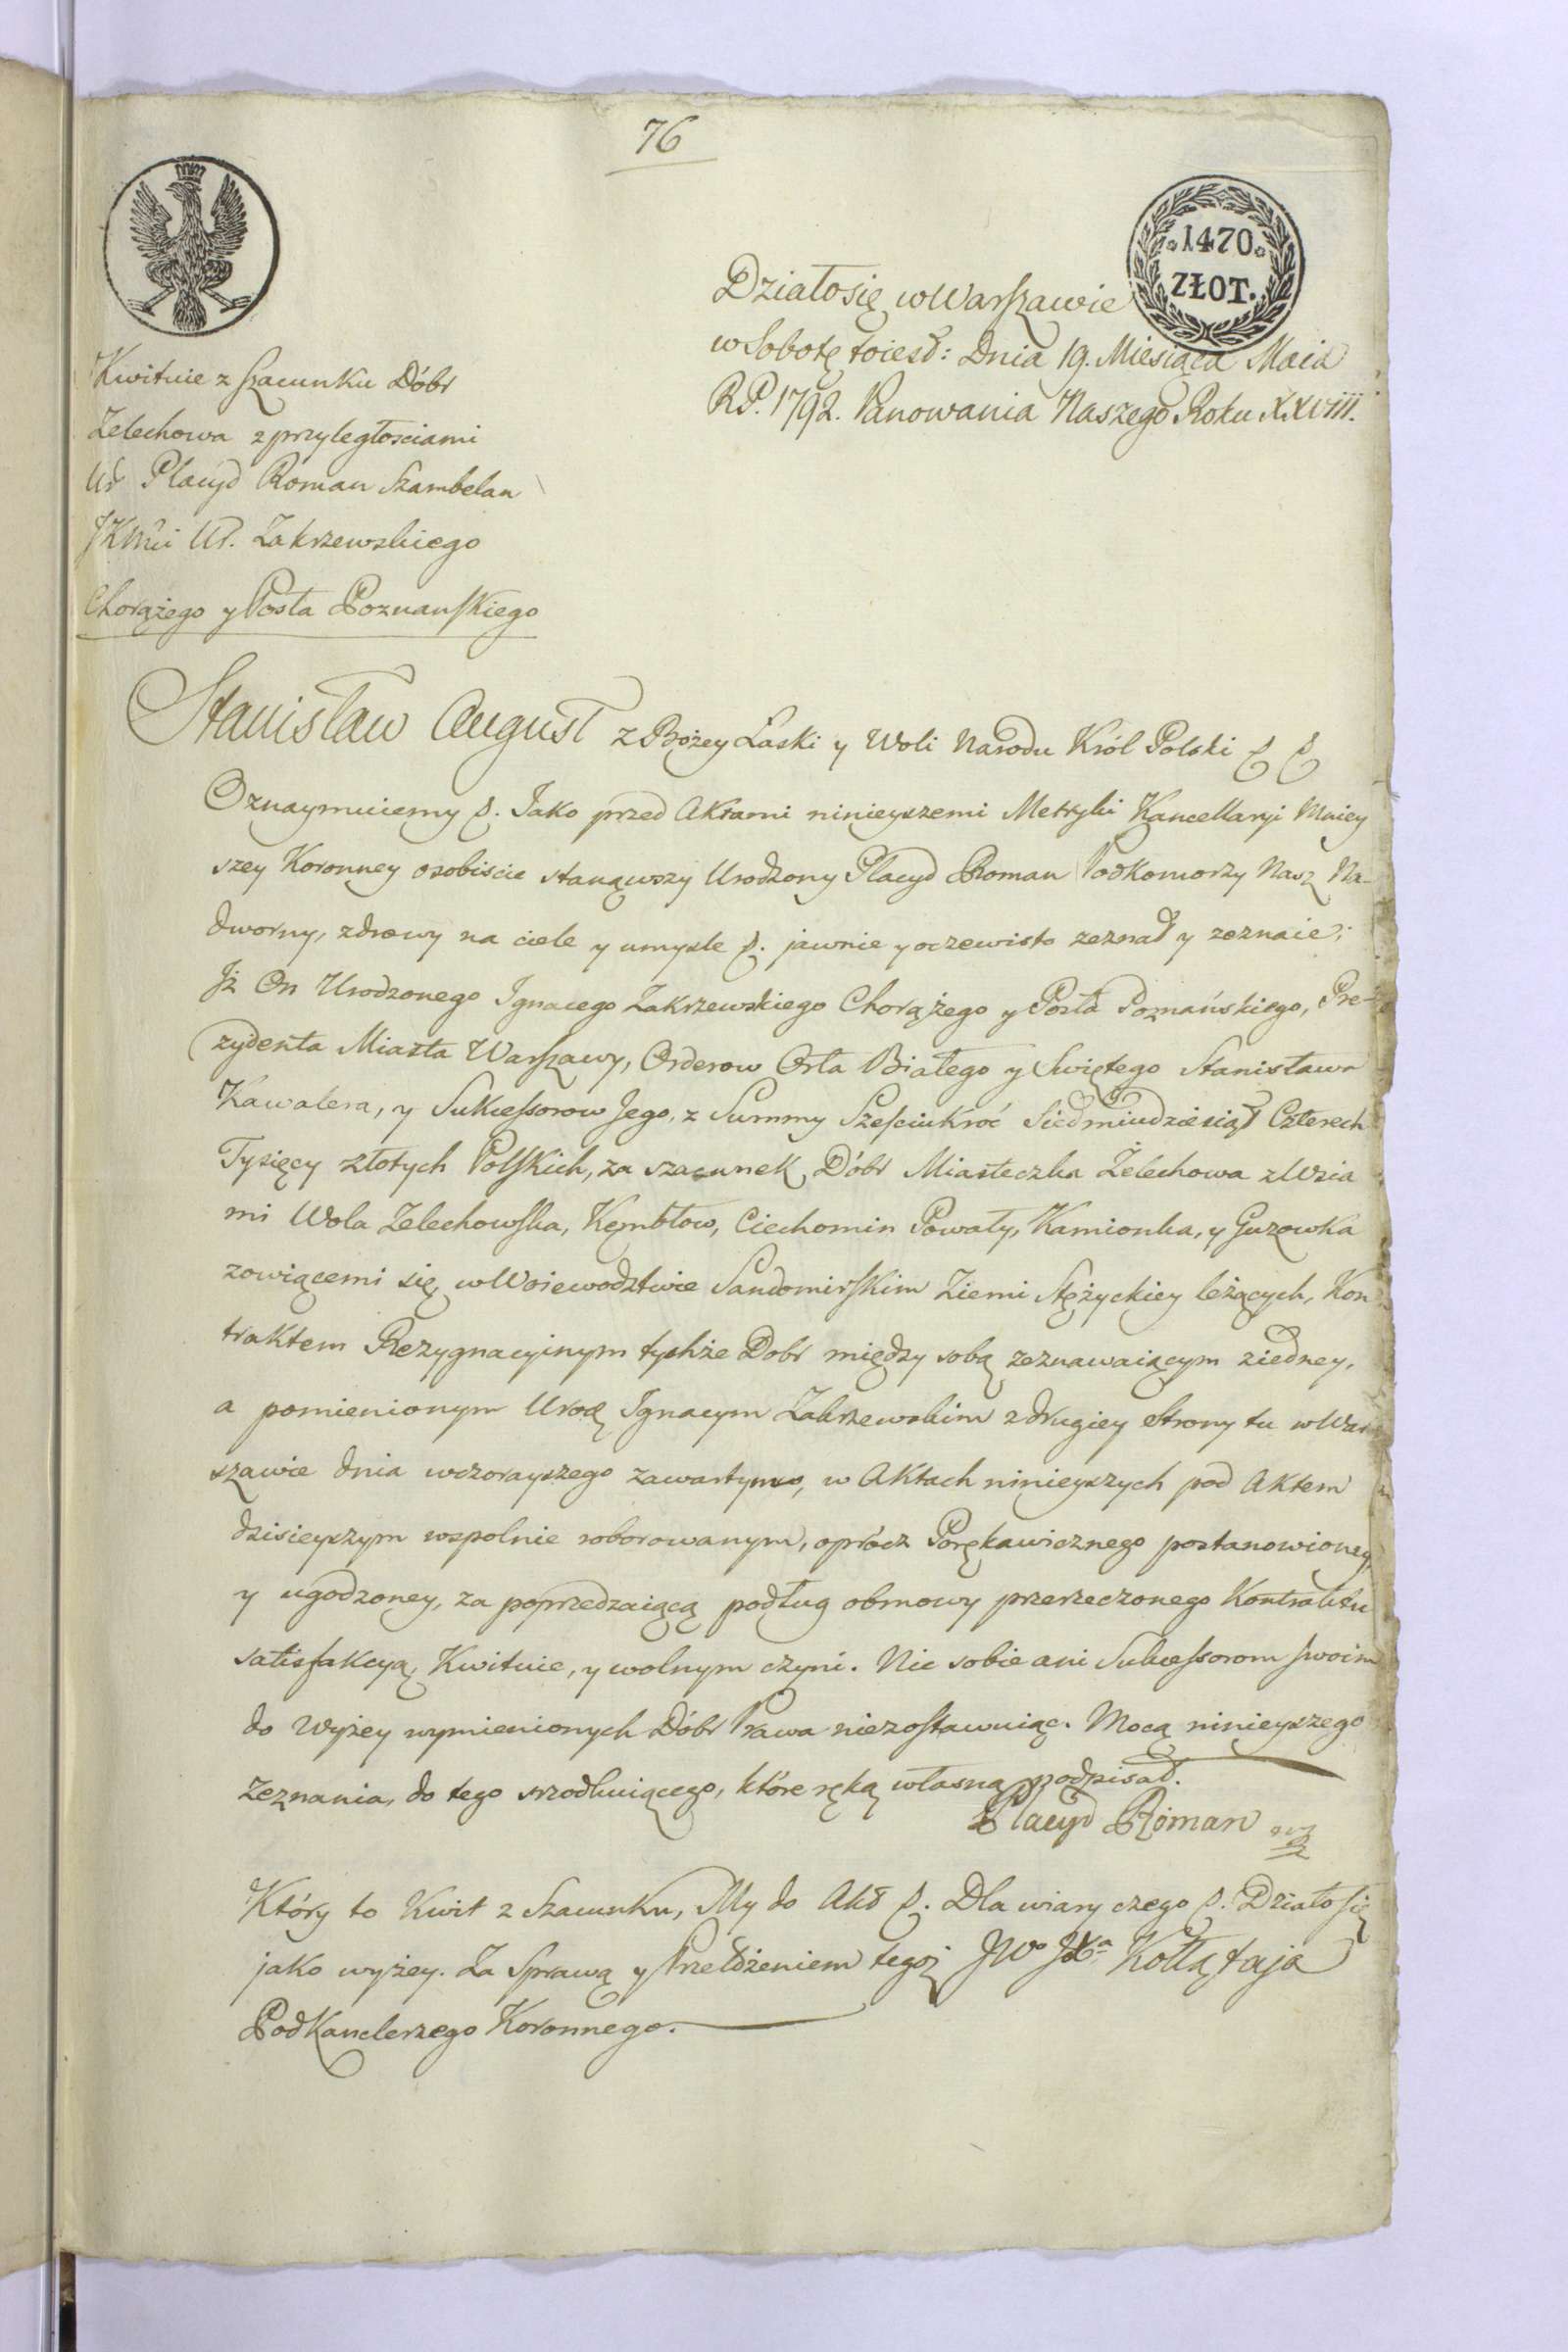 76
.1470.
ZŁOT.
Działo się w Warszawie
w Sobotę to iest: Dnia 19. Miesiąca Maia
R.P. 1792. Panowania Naszego Roku XXVIII.
Kwituie z szacunku Dóbr
Zelechowa z przyległosciami
Ur Placyd Roman Szambelan
JKMci Ur. Zakrzewskiego
Chorążego y Posła Poznanskiego
Stanisław August z Bożey Łaski y Woli Narodu Król Polski
Oznaymuiemy &. Jako przed Aktami ninieyszemi Metryki Kancellaryi Mniey
szey Koronney osobiscie stanąwszy Urodzony Placyd Roman Podkomorzy Nasz Na-
dworny, zdrowy na ciele y umysle &. jawnie y oczewisto zeznał y zeznaie;
Jż On Urodzonego Ignacego Zakrzewskiego Chorążego y Posła Poznańskiego, Pre-
zydenta Miasta Warszawy, Orderow Orła Białego y Swiętego Stanisława
Kawalera, y Sukcessorow Jego, z Summy Szesciukroć Siedmiudziesiąt Czterech
Tysięcy złotych Polskich, za szacunek Dóbr Miasteczka Żelechowa z Wsia
mi Wola Zelechowska, Kęmbłow, Ciechomin Powały, Kamionka, y Guzowka
zowiącemi się w Woiewodztwie Sandomirskim Ziemi Stężyckiey leżących, Kon
traktem Rezygnacyinym tychże Dobr między sobą zeznawaiącym ziedney,
a pomienionym Urod Ignacym Zakrzewskim z drugiey Strony tu w War
szawie dnia wczorayszego zawartym, w Aktach ninieyszych pod Aktem
dzisieyszym wspolnie roborowanym, oprócz Porękawicznego postanowioney,
y ugodzoney, za poprzedzaiącą podług obmowy przerzeczonego Kontraktu
satisfakcyą, Kwituie, y wolnym czyni. Nic sobie ani Sukcessorom swoim
do wyżey wymienionych Dóbr Prawa niezostawuiąc. Mocą ninieyszego
zeznania, do tego srzodkuiącego, które ręką własną podpisał.
Placyd Roman
Który to Kwit z Szacunku, My do Akt &. Dla wiary czego &. Działo się
jako wyżey. Za Sprawą y Przełożeniem tegoż JWo JXa Kołłątaja
Podkanclerzego Koronnego.